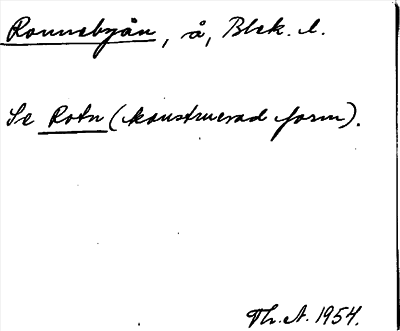 Ronnebyån, å, Blek. l.
Se Rotn (konstruerad form).
Th. A. 1954.